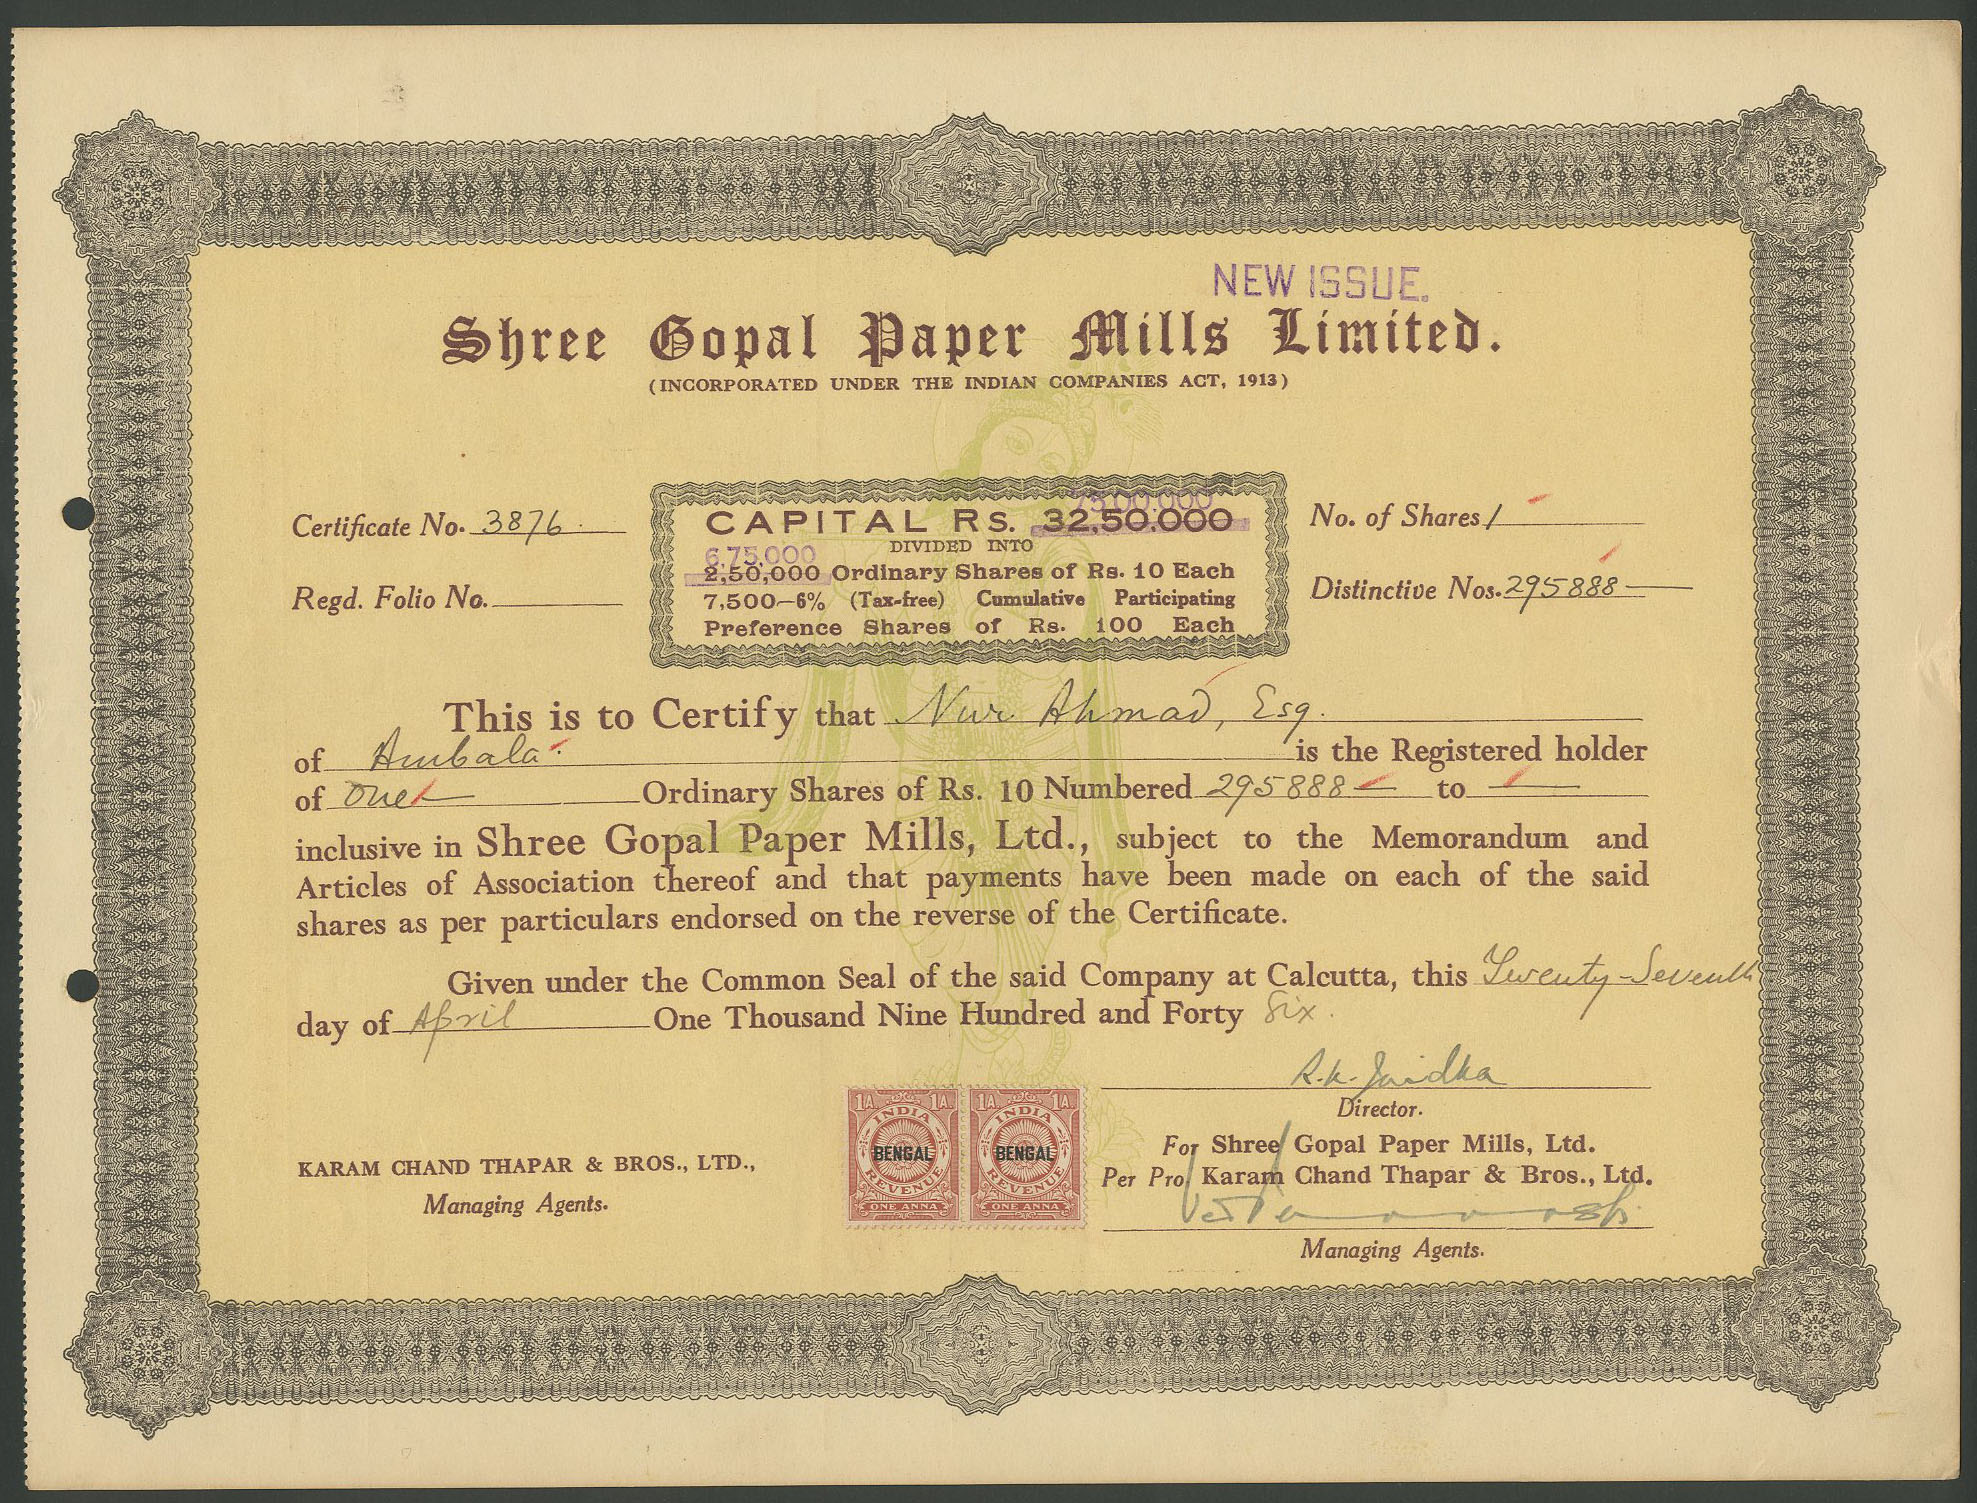 NEW ISSUE.
Shree Gopal Paper Mills Limited.
(INCORPORATED UNDER THE INDIAN COMPANIES ACT, 1913)
Certificate No. 3876.
Regd. Folio No.
75,00,000
CAPITAL RS. 32,50,000
DIVIDED INTO
6,75,000
2,50,000 Ordinary Shares of Rs. 10 Each
7,500—6% (Tax-free) Cumulative Participating
Preference Shares of Rs. 100 Each
No. of Shares 1
Distinctive Nos. 295888 —
This is to Certify that Nur Ahmad, Esq.
of Ambala. is the Registered holder
of One — Ordinary Shares of Rs. 10 Numbered 295888 — to —
inclusive in Shree Gopal Paper Mills, Ltd., subject to the Memorandum and
Articles of Association thereof and that payments have been made on each of the said
shares as per particulars endorsed on the reverse of the Certificate.
Given under the Common Seal of the said Company at Calcutta, this Twenty-Seventh
day of April One Thousand Nine Hundred and Forty Six.
R.K. Jaidka
Director.
For Shree Gopal Paper Mills, Ltd.
Per Pro. Karam Chand Thapar & Bros., Ltd.
Managing Agents.
KARAM CHAND THAPAR & BROS., LTD.,
Managing Agents.
1A. 1A.
INDIA
BENGAL
REVENUE
ONE ANNA
1A. 1A.
INDIA
BENGAL
REVENUE
ONE ANNA